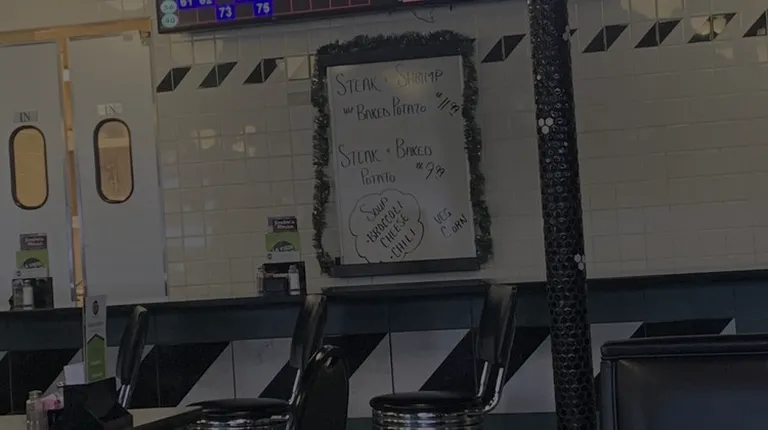 61 62
73 75
IN
IN
STEAK + SHRIMP
w/ BAKED POTATO $11.99
STEAK + BAKED
POTATO $9.99
SOUP
-BROCCOLI
CHEESE
-CHILI
VEG
CORN